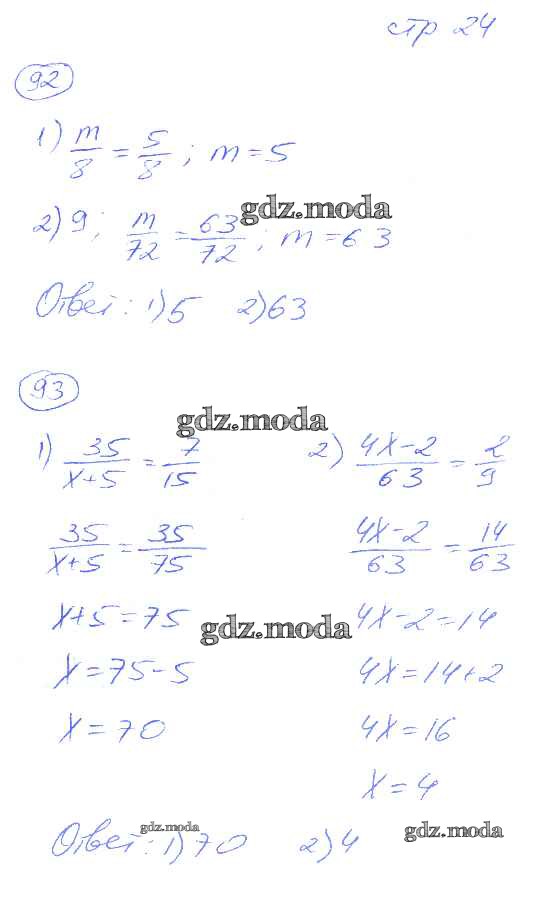 стр 24
92
1) m/8 = 5/8 ; m = 5
gdz.moda
2) 9; m/72 = 63/72 ; m = 63
Ответ: 1) 5 2) 63
93
gdz.moda
1) 35/x+5 = 7/15
35/x+5 = 35/75
x+5=75
x=75-5
x=70
2) 4x-2/63 = 2/9
4x-2/63 = 14/63
gdz.moda
4x-2=14
4x=14+2
4x=16
x=4
gdz.moda
gdz.moda
Ответ: 1) 70 2) 4